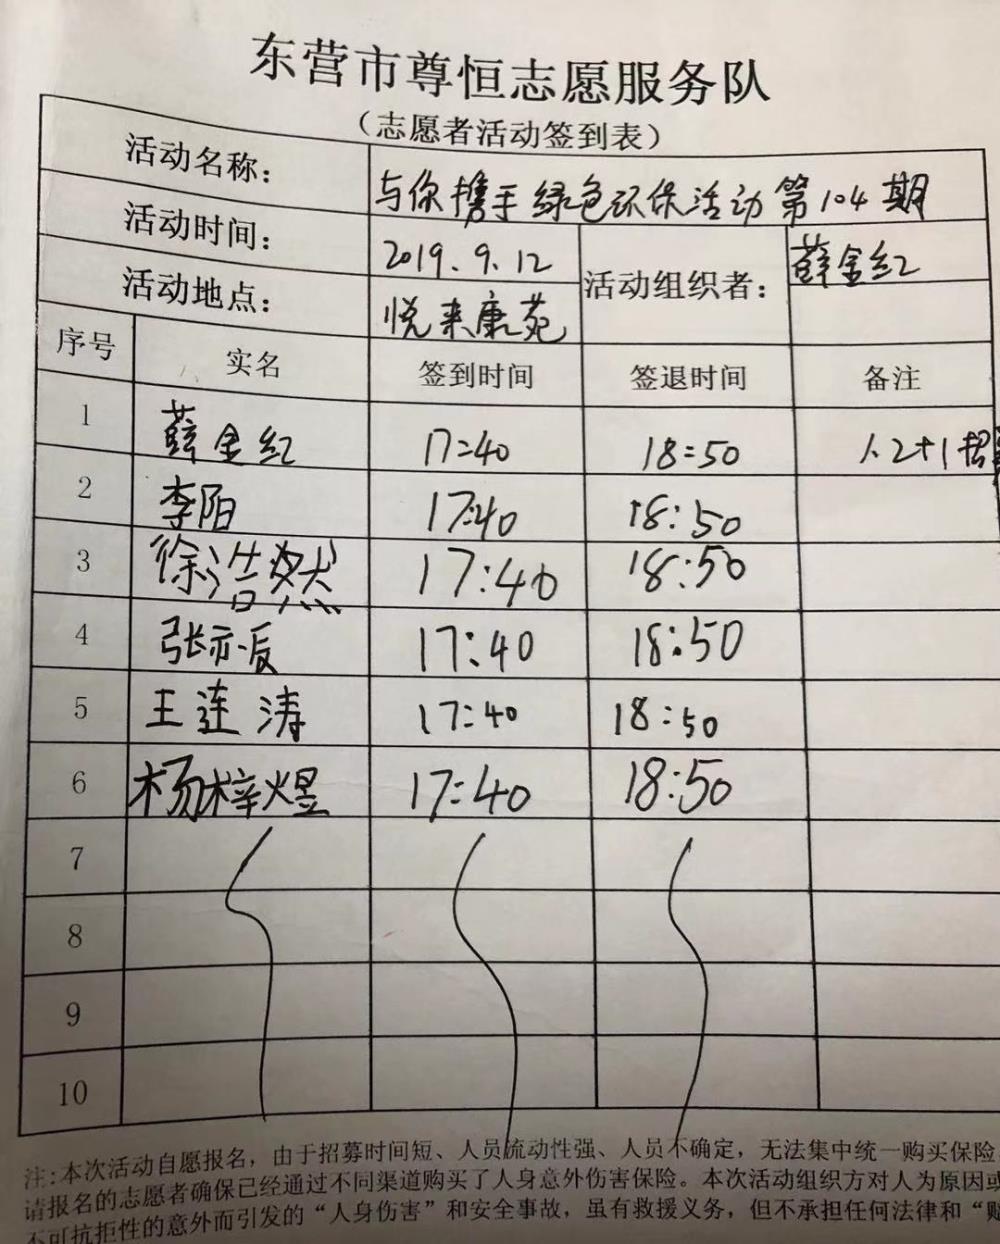 东营市尊恒志愿服务队
（志愿者活动签到表）
活动名称： 与你携手绿色环保活动第104期
活动时间： 2019.9.12 活动组织者： 薛金红
活动地点： 悦来康苑
序号 实名 签到时间 签退时间 备注
1 薛金红 17:40 18:50 1.2+1
2 李阳 17:40 18:50
3 徐浩然 17:40 18:50
4 张亦 17:40 18:50
5 王莲涛 17:40 18:50
6 杨梓煜 17:40 18:50
7
8
9
10
注:本次活动自愿报名，由于招募时间短、人员流动性强、人员不确定，无法集中统一购买保险
请报名的志愿者确保已经通过不同渠道购买了人身意外伤害保险。本次活动组织方对人为原因或
不可抗拒性的意外而引发的“人身伤害”和安全事故，虽有救援义务，但不承担任何法律和“赔